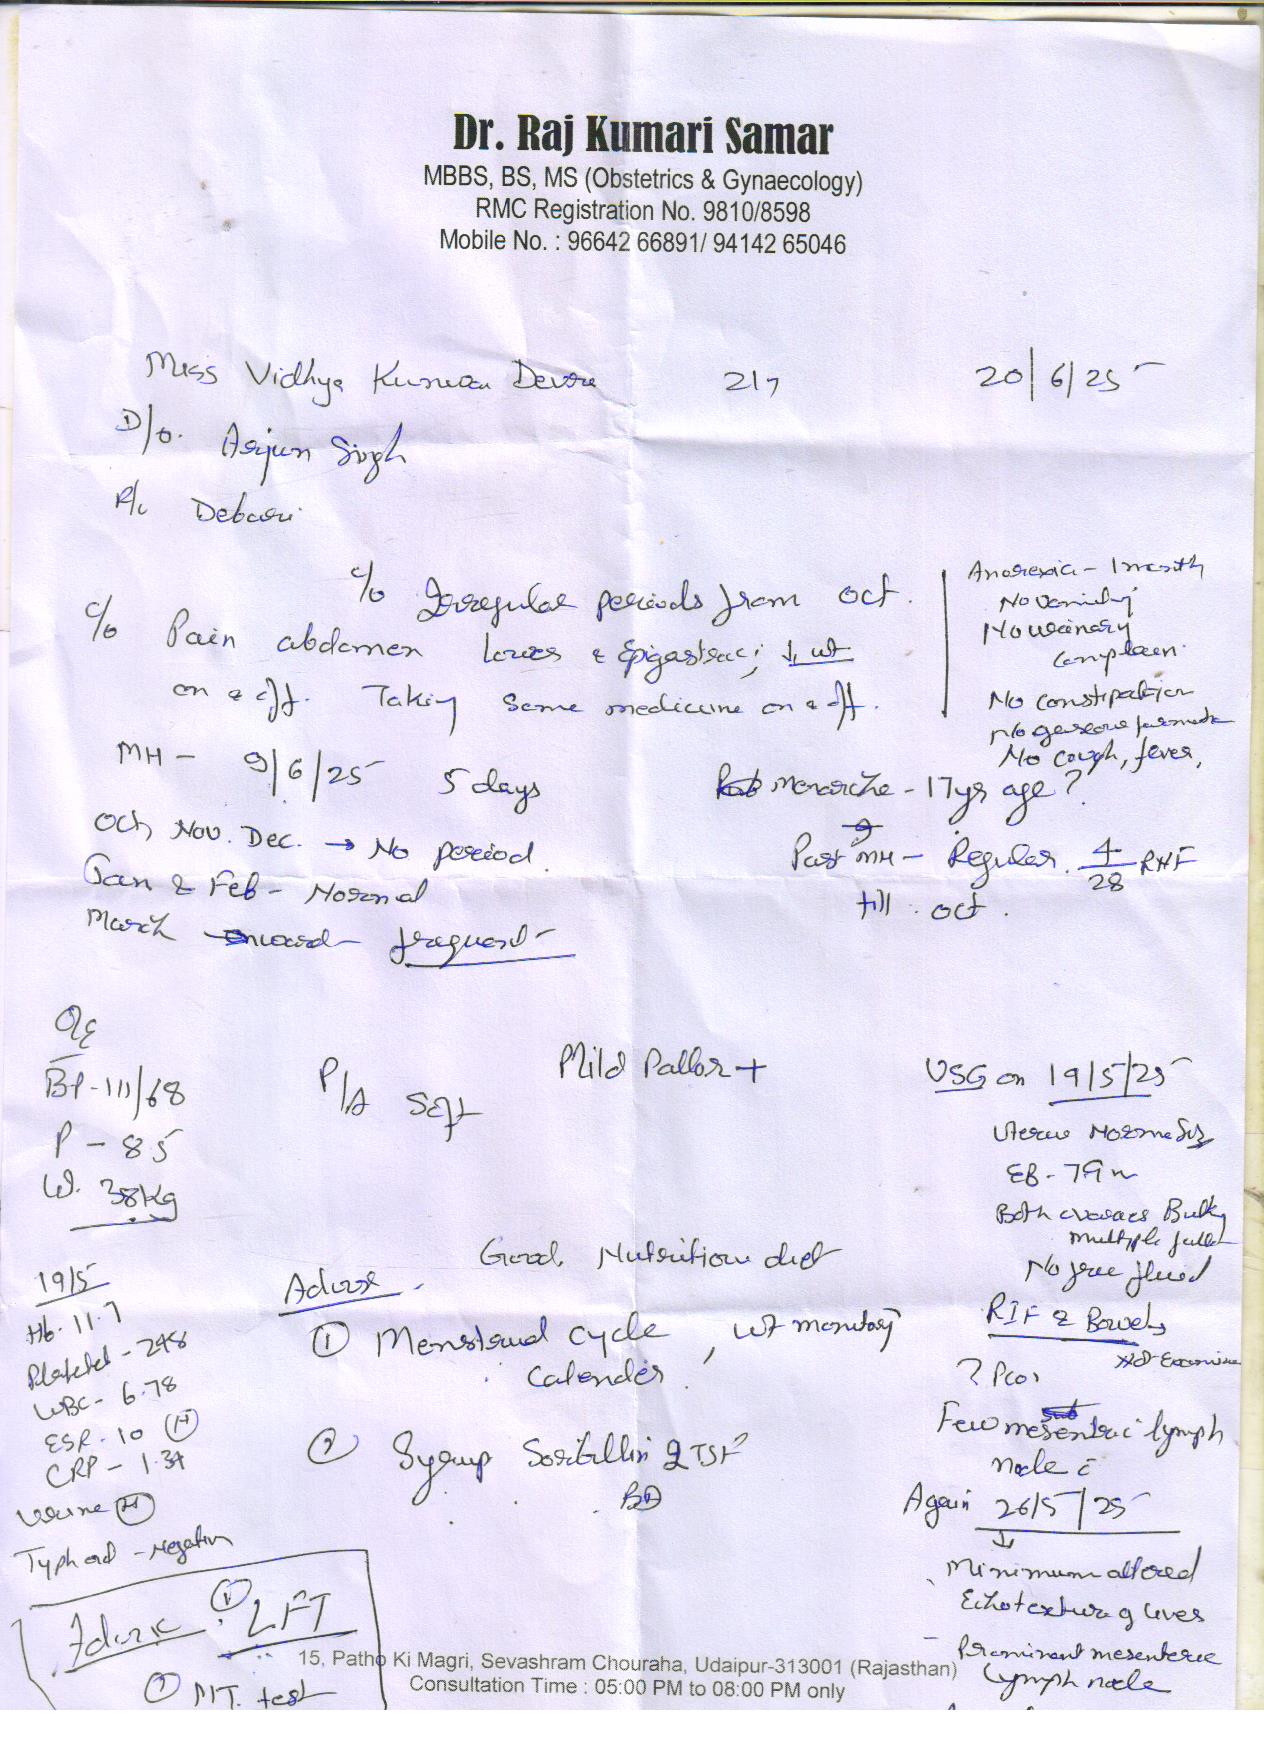 Dr. Raj Kumari Samar
MBBS, BS, MS (Obstetrics & Gynaecology)
RMC Registration No. 9810/8598
Mobile No. : 96642 66891/ 94142 65046
Miss Vidhya Kunwar 21y 20/6/25
D/o. Arjun Singh
R/o Debari
c/o Irregular periods from oct.
c/o Pain abdomen lower & Epigastric; ↓ wt
on & off. Taking some medicine on & off.
Anorexia - 1 month
No vomiting
No urinary
complain.
No constipation
No gaseous
No cough, fever,
MH - 9/6/25 5 days
Menarche - 17yr age?
Oct, Nov. Dec. → No period.
Past MH - Regular. 4/28 RHF
till oct.
Jan & Feb - Normal
March onward - frequent
O/E
BP - 111/68
P - 85
W. 38Kg
P/A Soft
Mild Pallor +
USG on 19/5/25
Uterus Normal Siz
EB - 79
Both ovaries Bulky
multiple
No free fluid
RIF & Bowels
Not
? Pco
Few mesenteric lymph
node c̄
Again 26/5/25
↓
Minimum altered
Echotexture of liver
- Prominent mesenteric
lymph node
19/5
Hb. 11.7
Platelet - 248
WBC - 6.78
ESR - 10 (N)
CRP - 1.34
Urine (N)
Typhoid - Negative
Good Nutrition diet
Advise
① Menstrual cycle, wt monitory
Calender.
② Syrup 2 TSF
BD
Advise ① LFT
② MT. test
15, Patho Ki Magri, Sevashram Chouraha, Udaipur-313001 (Rajasthan)
Consultation Time : 05:00 PM to 08:00 PM only